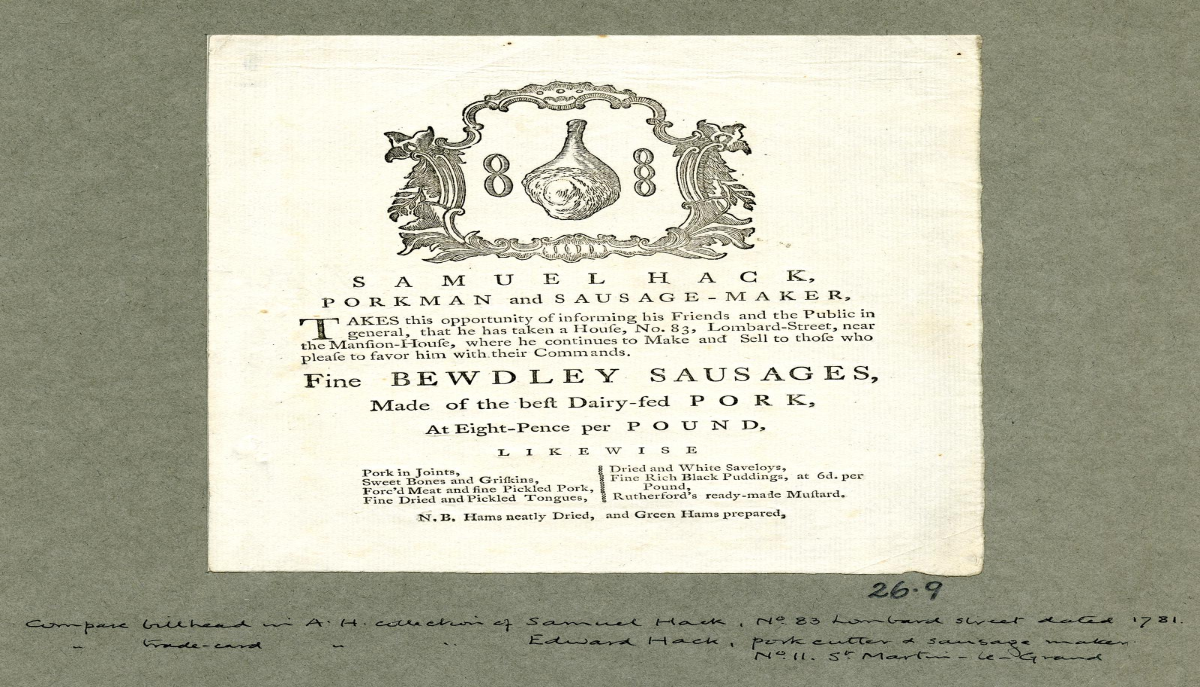 8 8
SAMUEL HACK,
PORKMAN and SAUSAGE-MAKER,
TAKES this opportunity of informing his Friends and the Public in
general, that he has taken a Houſe, No. 83, Lombard-Street, near
the Manſion-Houſe, where he continues to Make and Sell to thoſe who
pleaſe to favor him with their Commands.
Fine BEWDLEY SAUSAGES,
Made of the beſt Dairy-fed PORK,
At Eight-Pence per POUND,
LIKEWISE
Pork in Joints,
Sweet Bones and Griſkins,
Forc'd Meat and fine Pickled Pork,
Fine Dried and Pickled Tongues,
Dried and White Saveloys,
Fine Rich Black Puddings, at 6d. per
Pound,
Rutherford's ready-made Muſtard.
N.B. Hams neatly Dried, and Green Hams prepared,
26.9
Compare billhead in A.H. collection of Samuel Hack, No. 83 Lombard Street dated 1781.
„ trade-card „ „ Edward Hack, pork cutter & sausage maker
No. 11. St Martin-le-Grand